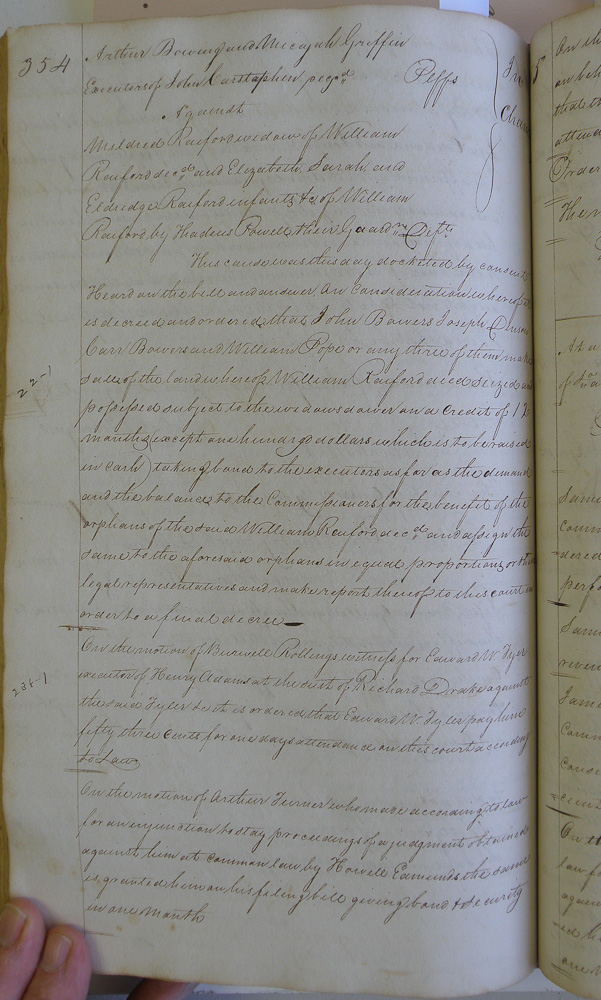 354
Arthur Bowing and Micajah Griffin
Executors of John Carstaphen, decd. Plffs
Against
In
Chan
Mildred Raiford widow of William
Raiford decd. and Elizabeth, Sarah, and
Eldredge Raiford infants &c of William
Raiford by Thadeus Powell their Guardn. Defts.
This cause was this day docketed by consent
Heard on the bill and answer, On Consideration whereof it
is decreed and ordered that John Bowers Joseph
Carr Bowers and William Pope or any three of them make
sale of the land whereof William Raiford died seized and
possessed subject to the widows dower on a credit of 12
months (except one hundred dollars which is to be raised
in cash) taking bond to the executors as far as the demand
and the balance to the Commissioners for the benefit of the
orphans of the said William Raiford decd. and assign the
same to the aforesaid orphans in equal proportions or their
legal representatives and make report thereof to this court in
order to a final decree
22-1
On the motion of Burwell Rollings witness for Edward W. Tyler
executor of Henry Adams at the suit of Richard Drake against
the said Tyler it is ordered that Edward W. Tyler pay him
fifty three cents for one days attendance on this court according
to Law
On the motion of Arthur Turner who made according to law
for an injunction to stay proceedings of a judgment obtained
against him at common law by Howell Edmunds the same
is granted him on his filing bill giving bond & security
in one Month